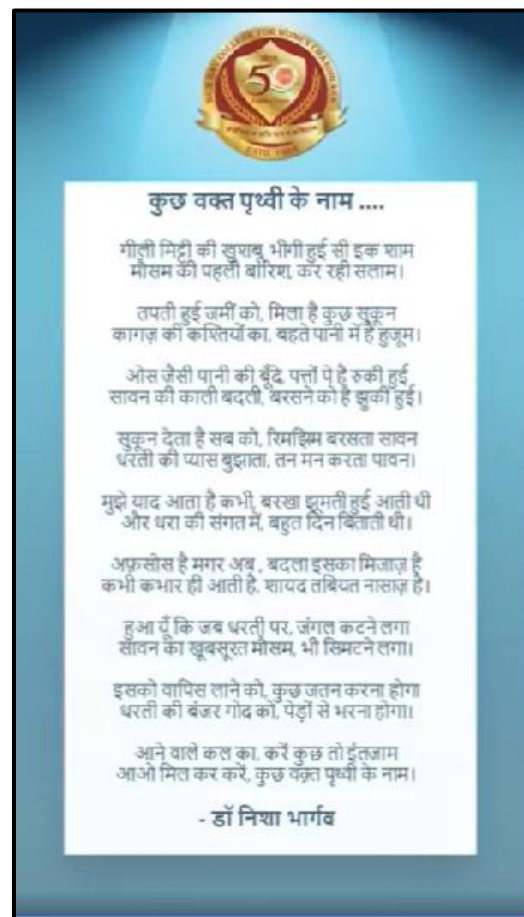 50
कुछ वक्त पृथ्वी के नाम ....
गीली मिट्टी की खुशबू, भीगी हुई सी इक शाम
मौसम की पहली बारिश, कर रही सलाम।
तपती हुई जमीं को, मिला है कुछ सुकून
कागज़ की कश्तियों का, बहते पानी में है हुजूम।
ओस जैसी पानी की बूँदे, पत्तों पे है रुकी हुई
सावन की काली बदली, बरसने को है झुकी हुई।
सुकून देता है सब को, रिमझिम बरसता सावन
धरती की प्यास बुझाता, तन मन करता पावन।
मुझे याद आता है कभी, बरखा झूमती हुई आती थी
और धरा की संगत में, बहुत दिन बिताती थी।
अफ़सोस है मगर अब , बदला इसका मिजाज़ है
कभी कभार ही आती है, शायद तबियत नासाज़ है।
हुआ यूँ कि जब धरती पर, जंगल कटने लगा
सावन का खूबसूरत मौसम, भी सिमटने लगा।
इसको वापिस लाने को, कुछ जतन करना होगा
धरती की बंजर गोद को, पेड़ों से भरना होगा।
आने वाले कल का, करें कुछ तो इंतजाम
आओ मिल कर करें, कुछ वक़्त पृथ्वी के नाम।
- डॉ निशा भार्गव